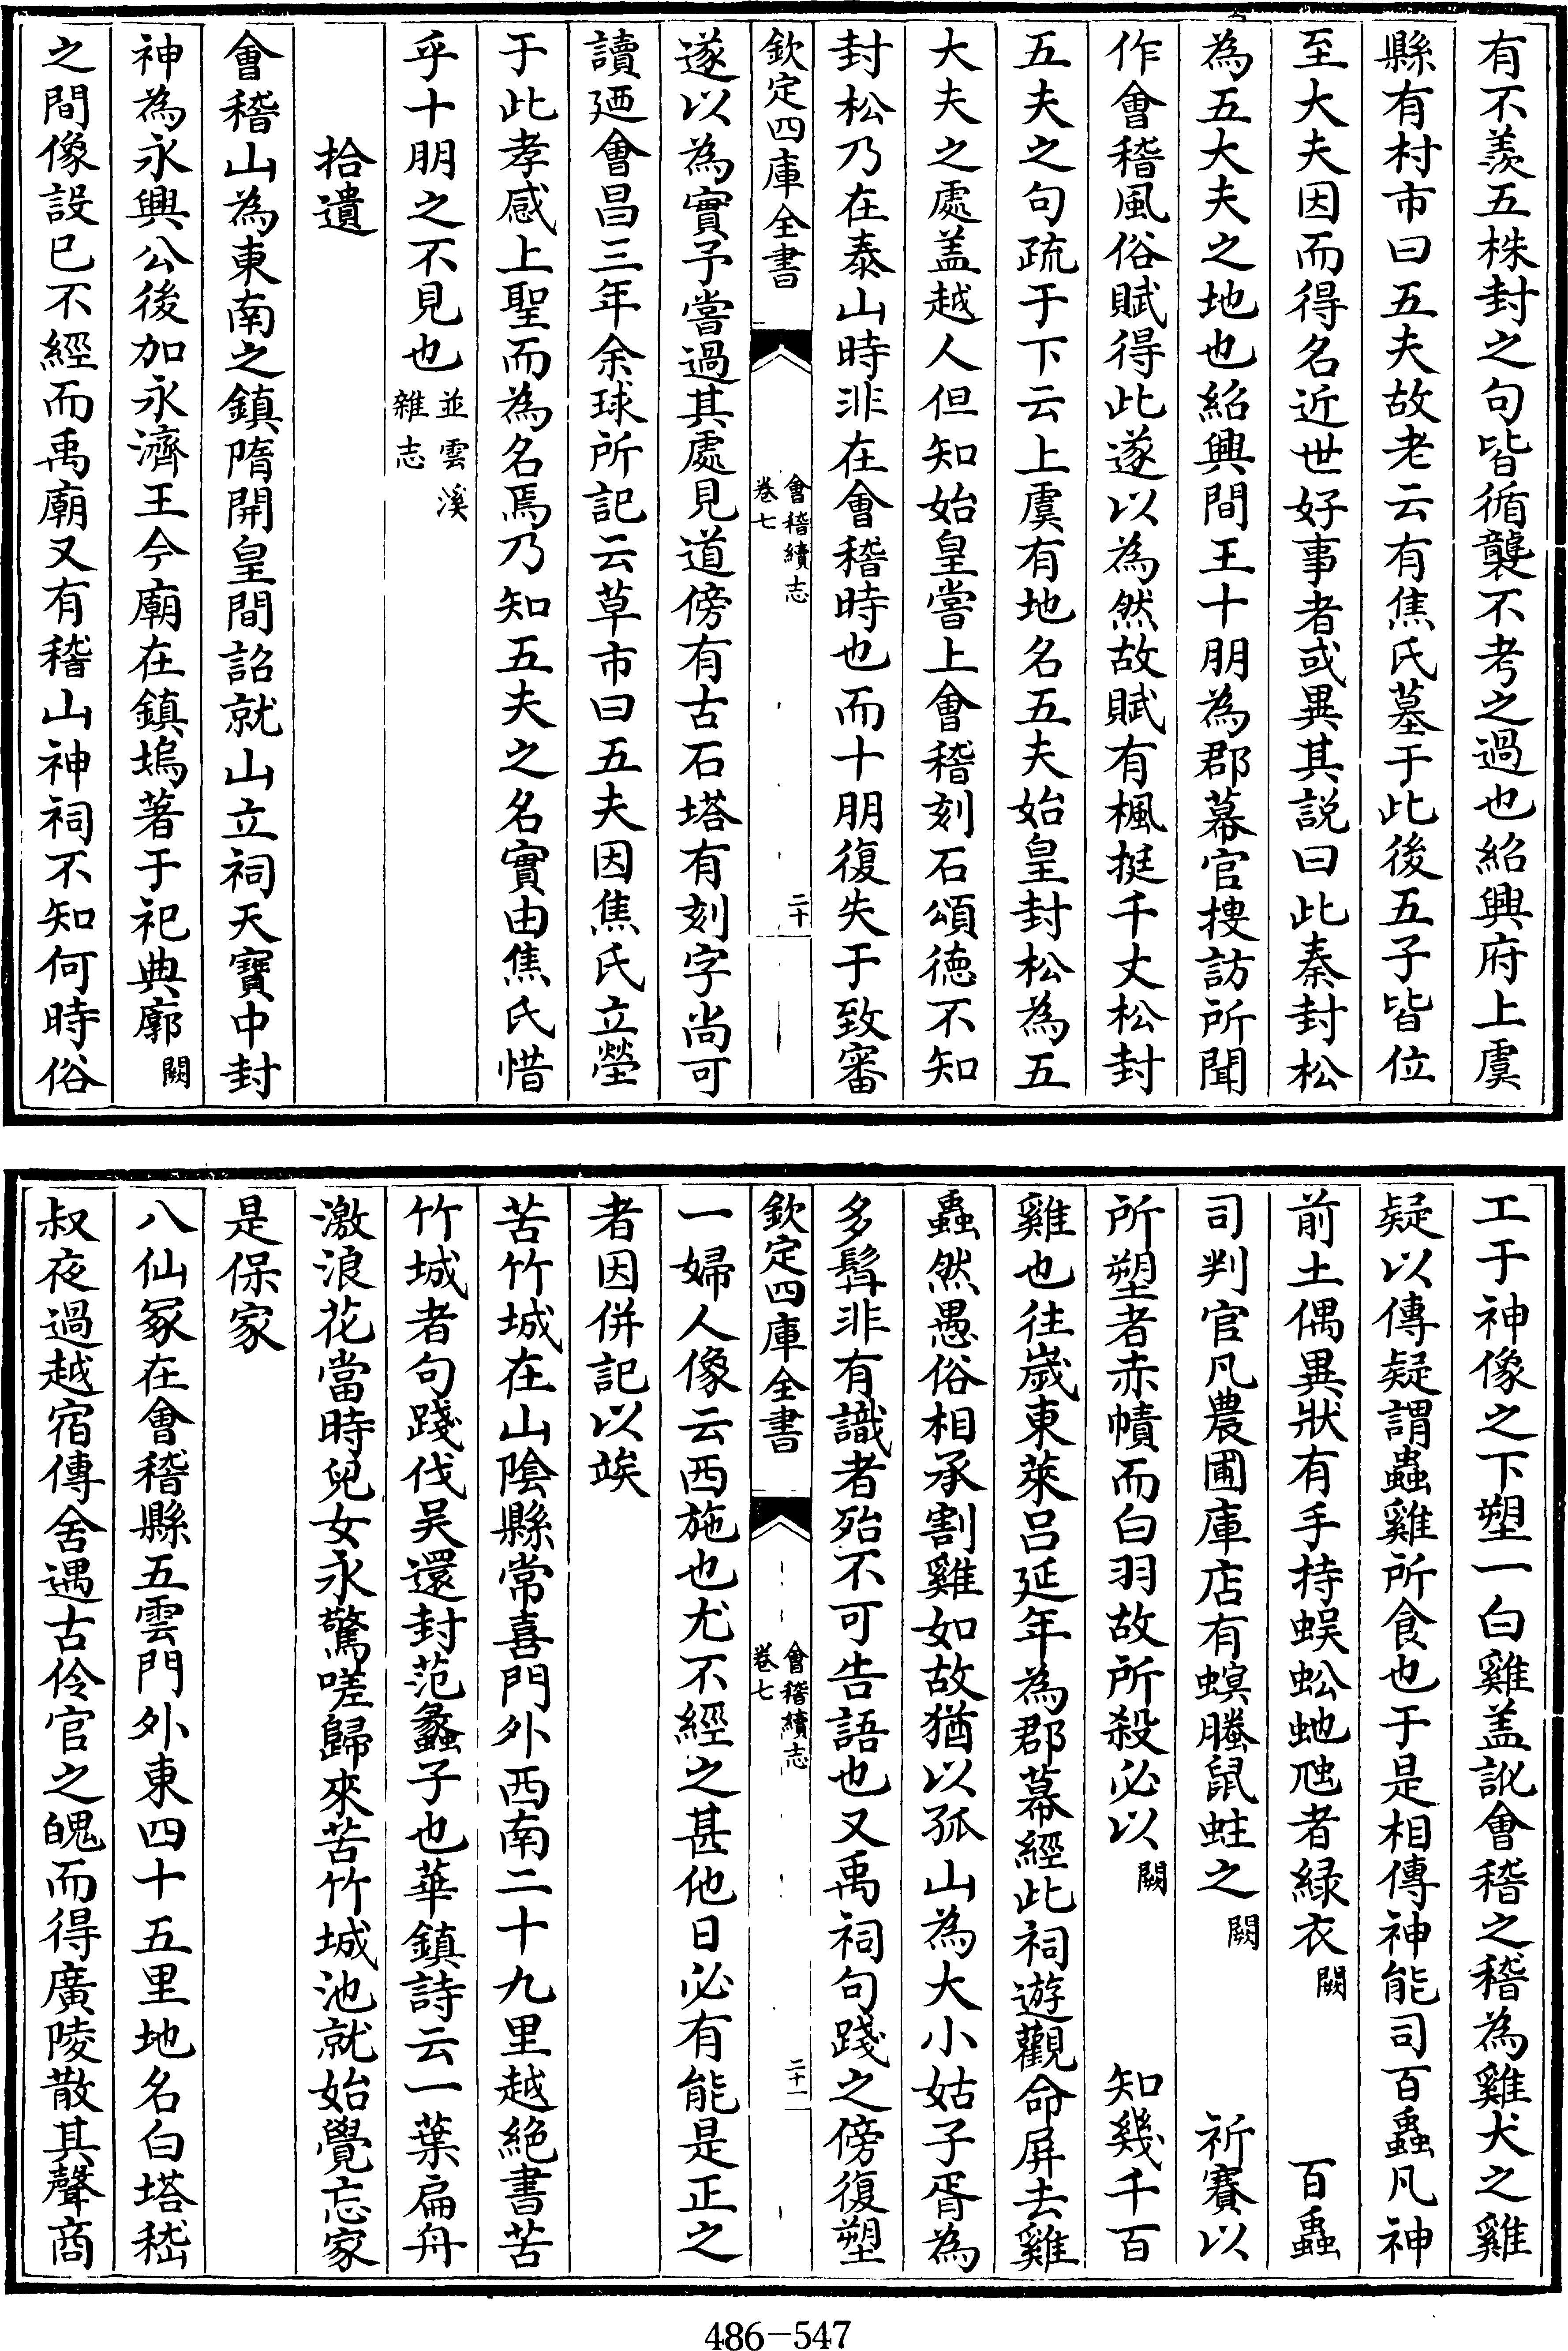 有不羨五株封之句皆循襲不考之過也紹興府上虞
縣有村市曰五夫故老云有焦氏墓于此後五子皆位
至大夫因而得名近世好事者或異其説曰此秦封松
為五大夫之地也紹興間王十朋為郡幕官摟訪所聞
作會稽風俗賦得此遂以為然故賦有楓挺千丈松封
五夫之句疏于下云上虞有地名五夫始皇封松為五
大夫之處盖越人但知始皇嘗上會稽刻石頌徳不知
封松乃在泰山時非在會稽時也而十朋復失于致審
欽定四庫全書
會稽續志
卷七
二十
遂以為實予嘗過其處見道傍有古石塔有刻字尚可
讀廼會昌三年余球所記云草市曰五夫因焦氏立塋
于此孝感上聖而為名焉乃知五夫之名實由焦氏惜
乎十朋之不見也並雲溪雜志
拾遺
會稽山為東南之鎮隋開皇間詔就山立祠天寶中封
神為永興公後加永濟王今廟在鎮塢著于祀典廓闕
之間像設已不經而禹廟又有稽山神祠不知何時俗
工于神像之下塑一白雞盖訛會稽之稽為雞犬之雞
疑以傳疑謂蟲雞所食也于是相傳神能司百蟲凡神
前土偶異狀有手持蜈蚣虵虺者緑衣闕百蟲
司判官凡農圃庫店有螟螣鼠蛀之闕祈賽以
所塑者赤幘而白羽故所殺必以闕知幾千百
雞也往嵗東萊吕延年為郡幕經此祠遊觀命屏去雞
蟲然愚俗相承割雞如故猶以孤山為大小姑子胥為
多髯非有識者殆不可告語也又禹祠句踐之傍復塑
欽定四庫全書
會稽續志
卷七
二十一
一婦人像云西施也尤不經之甚他日必有能是正之
者因併記以竢
苦竹城在山隂縣常喜門外西南二十九里越絶書苦
竹城者句踐伐吴還封范蠡子也華鎮詩云一葉扁舟
激浪花當時兒女永驚嗟歸來苦竹城池就始覺忘家
是保家
八仙冢在會稽縣五雲門外東四十五里地名白塔嵇
叔夜過越宿傳舍遇古伶官之魄而得廣陵散其聲商
486-547